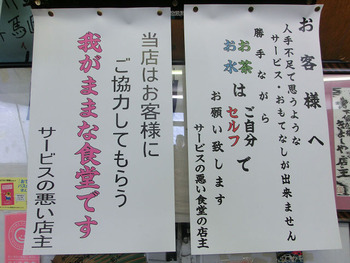 お客様へ
人手不足で思うような
サービス・おもてなしが出来ません
勝手ながら
お茶
お水
は
セルフ
ご自分
で
お願い致します
サービスの悪い食堂の店主
当店はお客様に
ご協力してもらう
我がままな食堂です
サービスの悪い店主